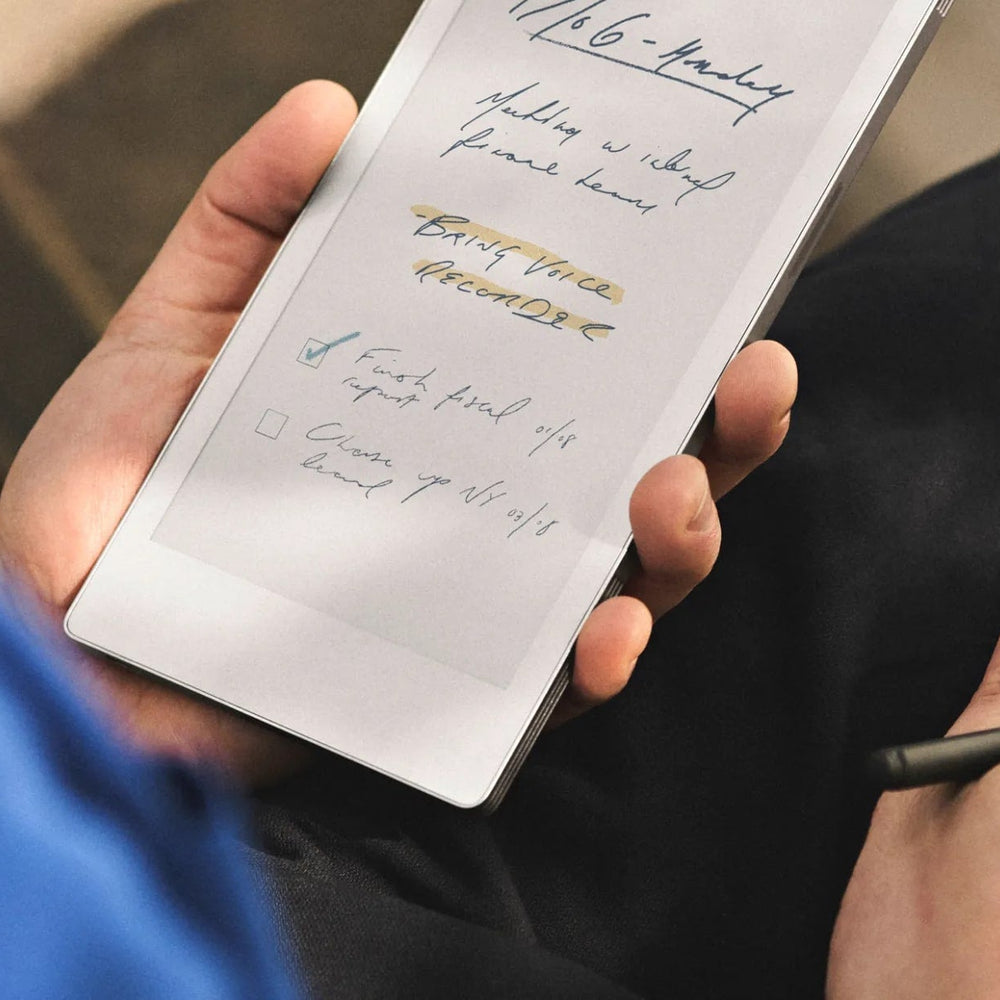 /06 - Monday
Meeting w
finance team
BRING VOICE
RECORDER
Finish fiscal 01/08
report
up NY 03/08